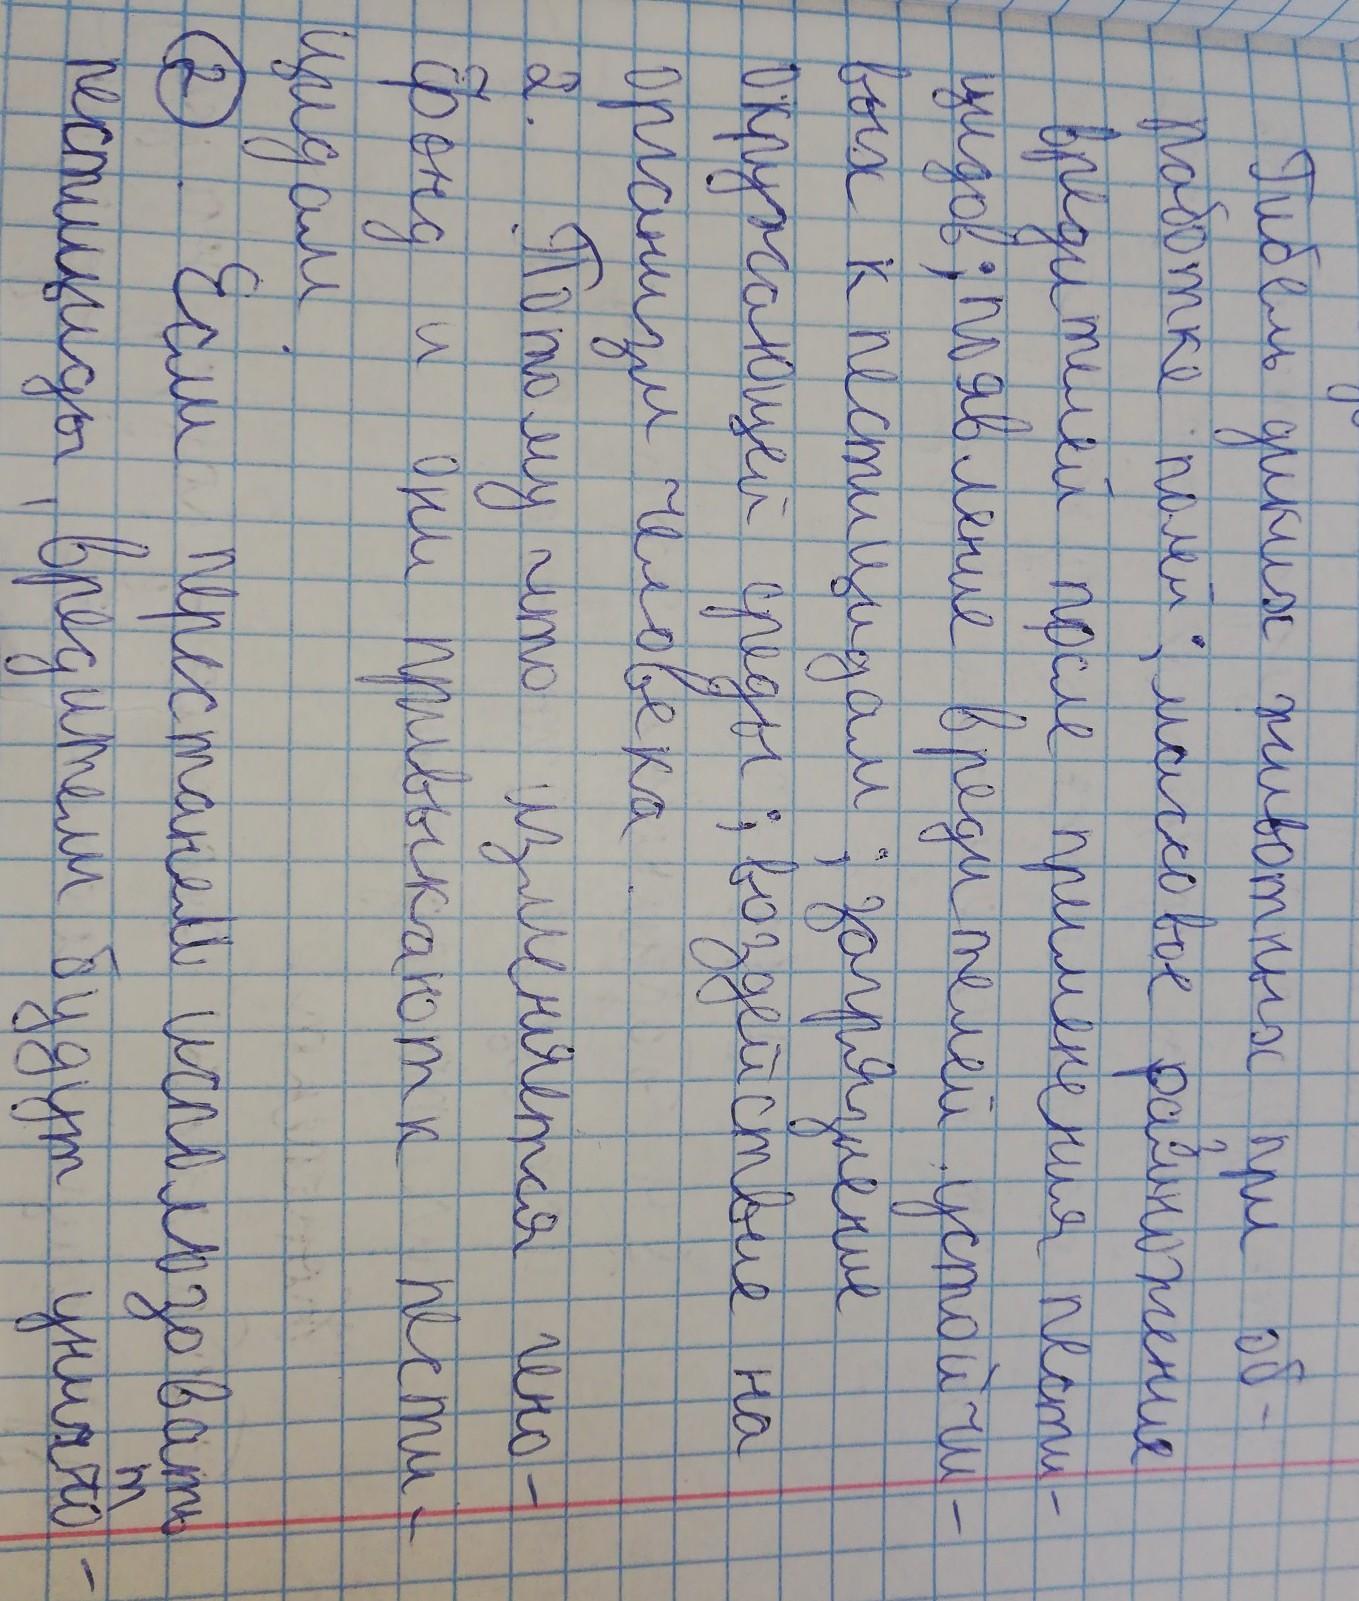 Гибель диких животных при об-
работке полей; массовое размножение
вредителей после применения пести-
цидов; появление вредителей устойчи-
вых к пестицидам; загрязнение
окружающей среды; воздействие на
организм человека.
2. Потому что изменяется гено-
фонд и они привыкают к пести-
цидам.
2 Если перестанем использовать
пестициды, вредители будут уничто-